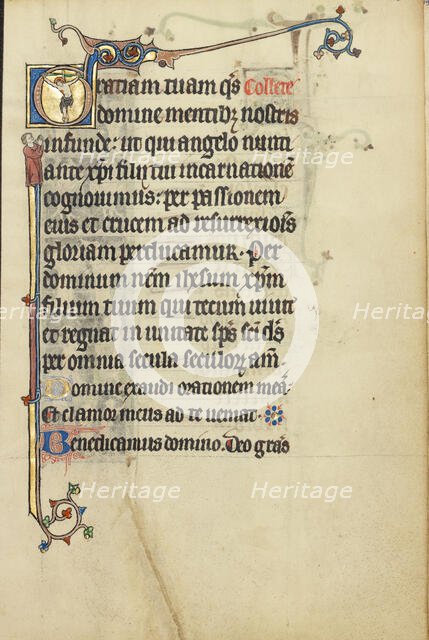 Gratiam tuam q̄s Collecte
domine mentibꝫ nostris
infunde: ut qui angelo nunti
ante xp̄i filij tui incarnationē
cognouimus: per passionem
eius et crucem ad resurrexionis
gloriam perducamur. Per
dominum nr̄m ihesum xp̄m
filium tuum qui tecum uiuit
et regnat in unitate sp̄s sc̄i d̄s
per omnia secula seculoꝝ am̄.
Domine exaudi orationem meā.
Et clamor meus ad te ueniat.
Benedicamus domino. Deo gr̄as
Heritage Heritage
Heritage Heritage
Heritage Heritage